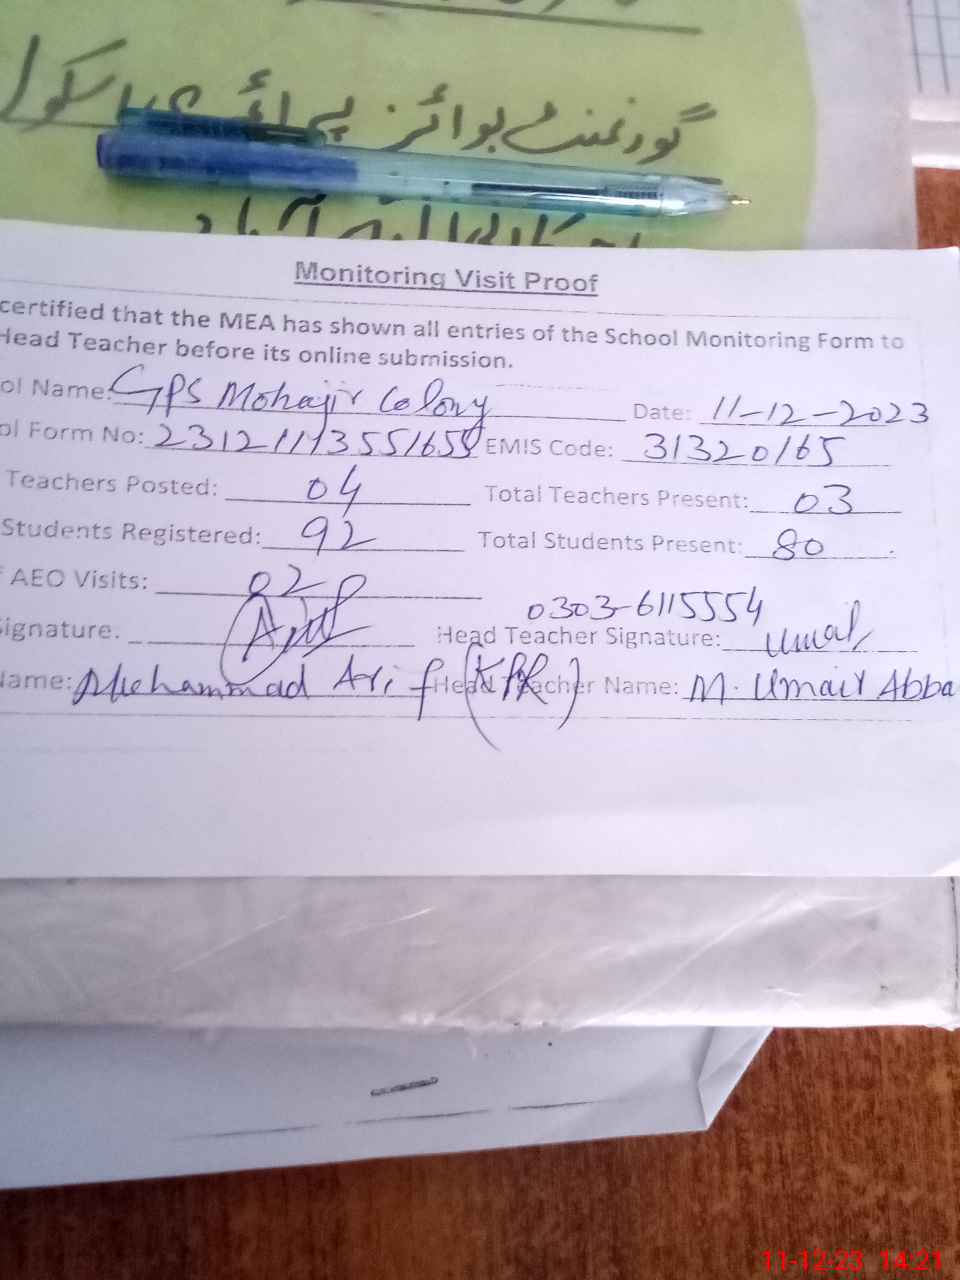 گورنمنٹ بوائز پرائمری سکول
آباد
Monitoring Visit Proof
certified that the MEA has shown all entries of the School Monitoring Form to
Head Teacher before its online submission.
ol Name: GPS Mohajir Colony Date: 11-12-2023
ol Form No: EMIS Code: 31320165
Teachers Posted: 04 Total Teachers Present: 03
Students Registered: 92 Total Students Present: 80
f AEO Visits: 02
0303-6115554
ignature. Head Teacher Signature: Umair
Name: Muhammad Arif Head Teacher Name: M. Umair Abba
11-12-23 14:21